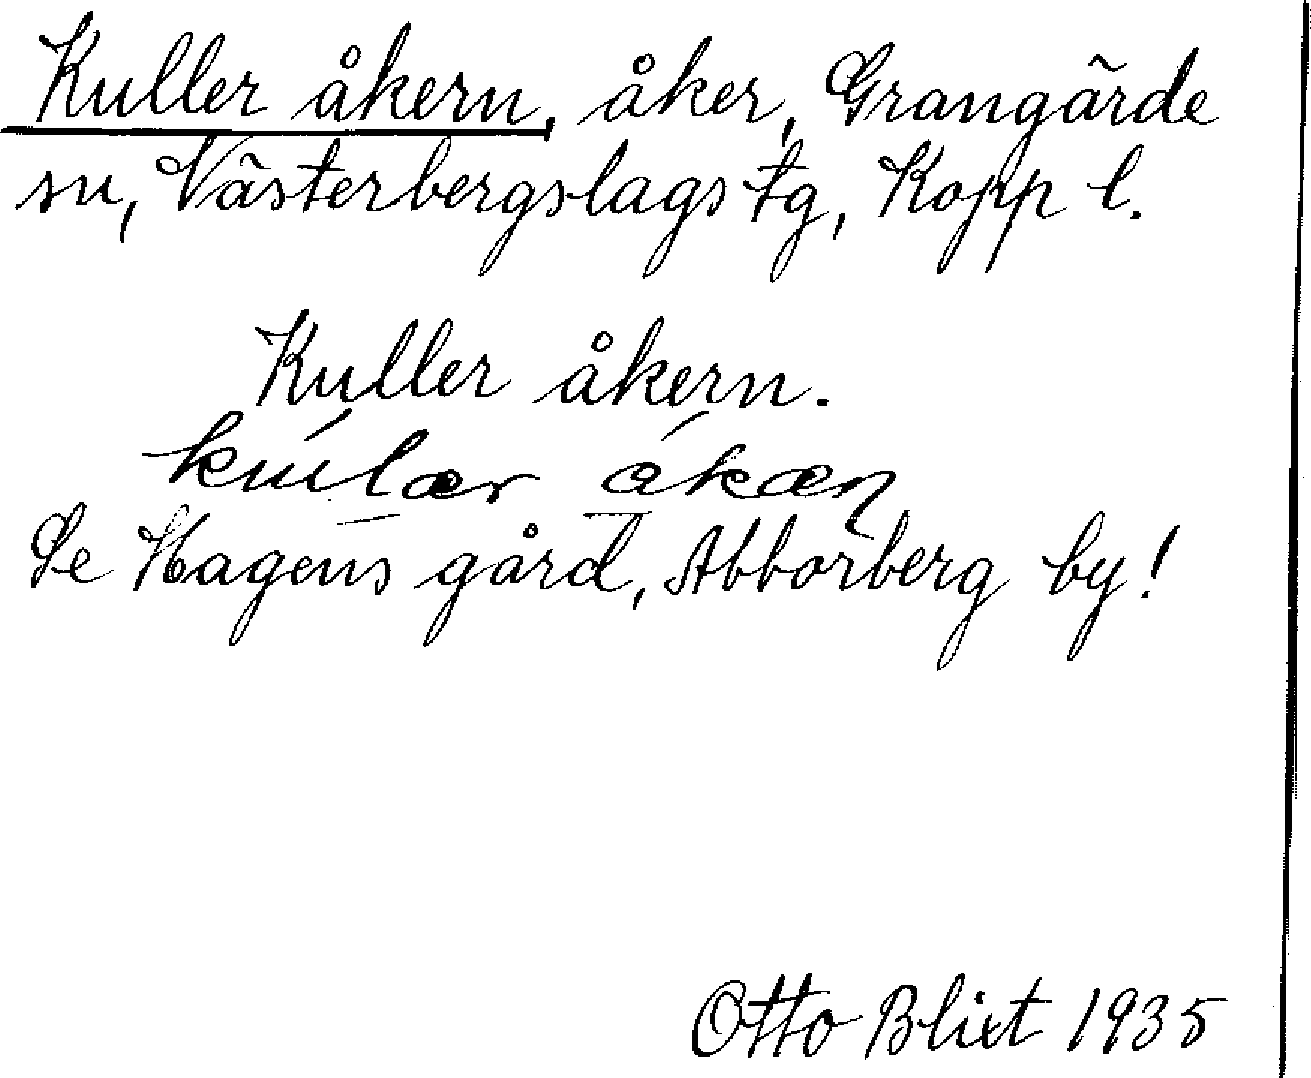 Kuller åkern, åker, Grangärde
sn, Västerbergslags tg, Kopp l.
Kuller åkern.
Se Hagens gård, Abborberg by!
Otto Blixt 1935